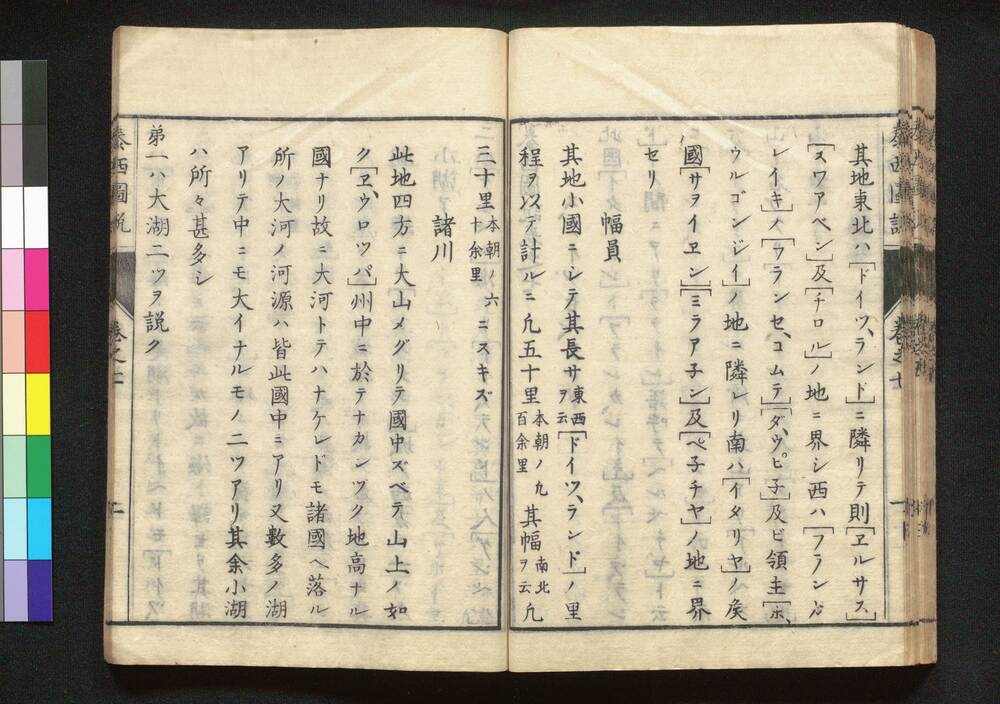 泰西圖説 巻之七 一
其地東北ハ[ドイツ、ランド]ニ隣リテ則[ヱルサス]
[スワアベン]及[チロル]ノ地ニ界シ西ハ[フランカ
レイキ]ノ[フランセ、コムテ][ダ、ウ、ピ子]及ビ領主[ホ、
ウルゴンジイ]ノ地ニ隣レリ南ハ[イタリヤ]ノ矦
國[サヲイヱン][ミラア子ン]及[ベ子チヤ]ノ地ニ界
セリ
幅員
其地小國ニシテ其長サ東西ヲ云[ドイツ、ランド]ノ里
程ヲ以テ計ルニ凢五十里本朝ノ九百余里其幅南北ヲ云凢
三十里本朝ノ六十余里ニスキズ
諸川
此地四方ニ大山メグリテ國中ズベテ山上ノ如
ク[ヱ、ウロツパ]州中ニ於テナカンヅク地高ナル
國ナリ故ニ大河トテハナケレドモ諸國ヘ落ル
所ノ大河ノ河源ハ皆此國中ニアリ又數多ノ湖
アリテ中ニモ大イナルモノ二ツアリ其余小湖
ハ所々甚多シ
弟一ハ大湖二ツヲ説ク
泰西圖説 巻之七 二